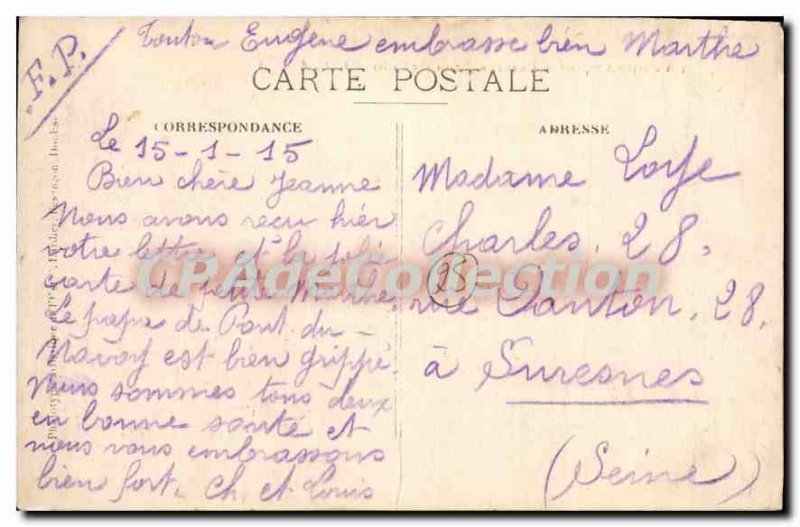 Tonton Eugène embrasse bien Marthe
F.P.
CARTE POSTALE
CORRESPONDANCE
Le 15-1-15
Bien chère Jeanne
Nous avons reçu hièr
votre lettre et la jolie
carte de petite Marthe.
Le papa de Pont du-
Navoy est bien grippé.
Nous sommes tous deux
en bonne santé et
nous vous embrassons
bien fort. Ch. et Louis
ADRESSE
Madame Loye
Charles. 28,
rue Danton, 28.
à Suresnes
(Seine)
25
CPADeCollection